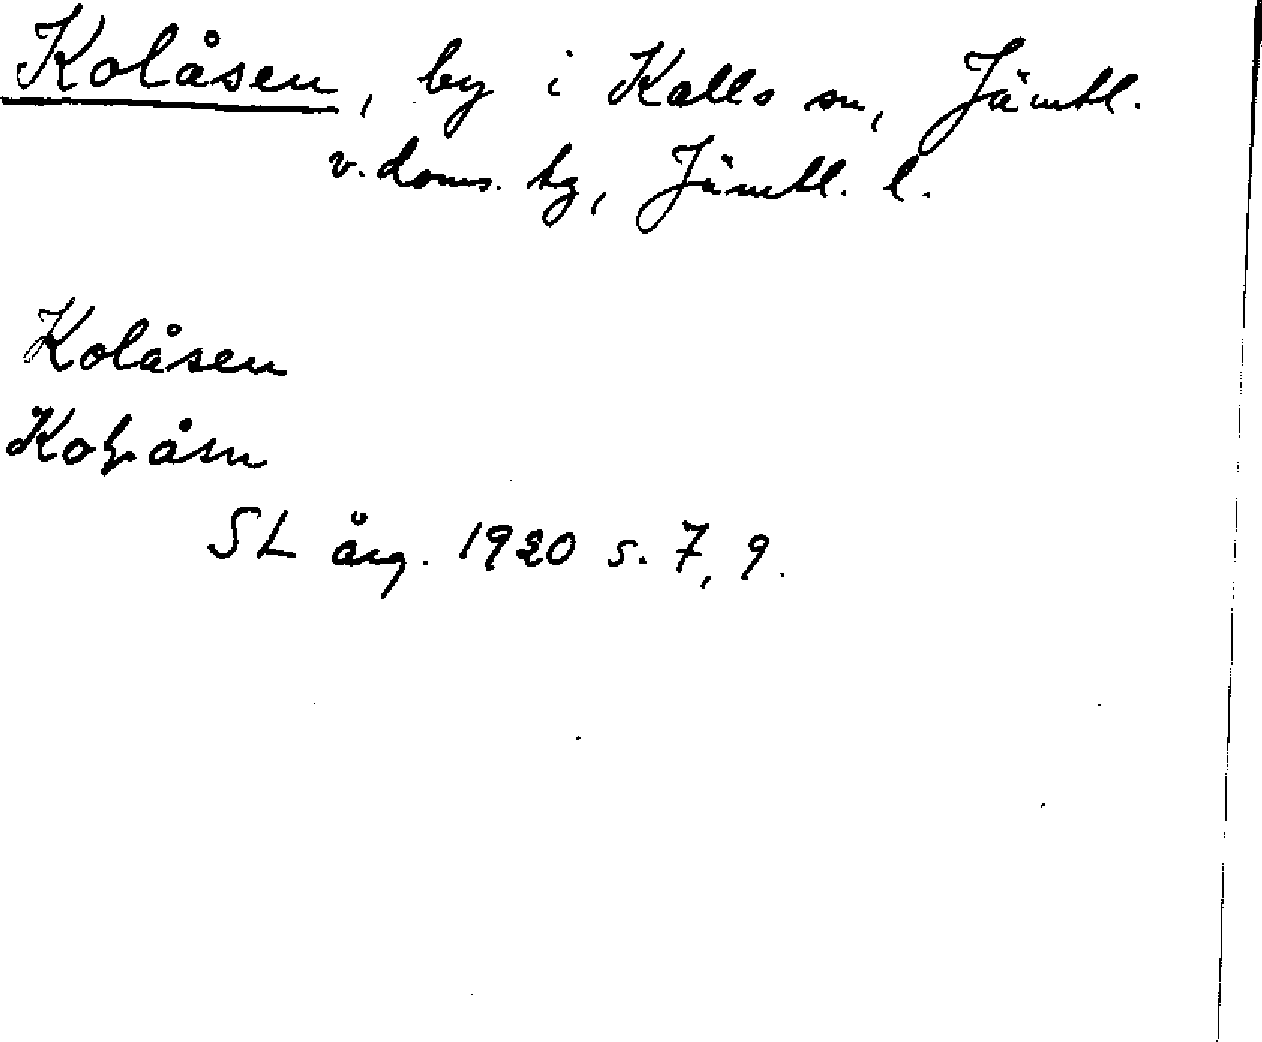 Kolåsen, by i Kalls sn, Jämtl.
v. doms. tg, Jämtl. l.
Kolåsen
SL årg. 1920 s. 7, 9.